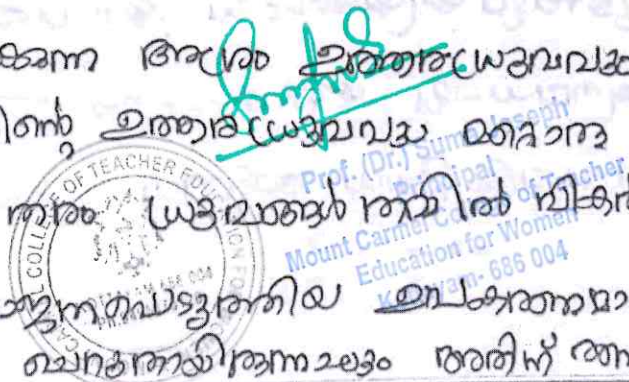 ക്കുന്ന അഗ്രം ഉത്തരധ്രുവവും
ന്റെ ഉത്തരധ്രുവവും മറ്റൊരു
തരം ധ്രുവങ്ങൾ തമ്മിൽ വികർ
പ്പെടുത്തിയ ഉപകരണമാ
ചെറുതായിരുന്നാലും അതിന്
Prof. (Dr.) Suma Joseph
Principal
Mount Carmel College of Teacher
Education for Women
Kottayam- 686 004
COLLEGE OF TEACHER EDUCATION FOR